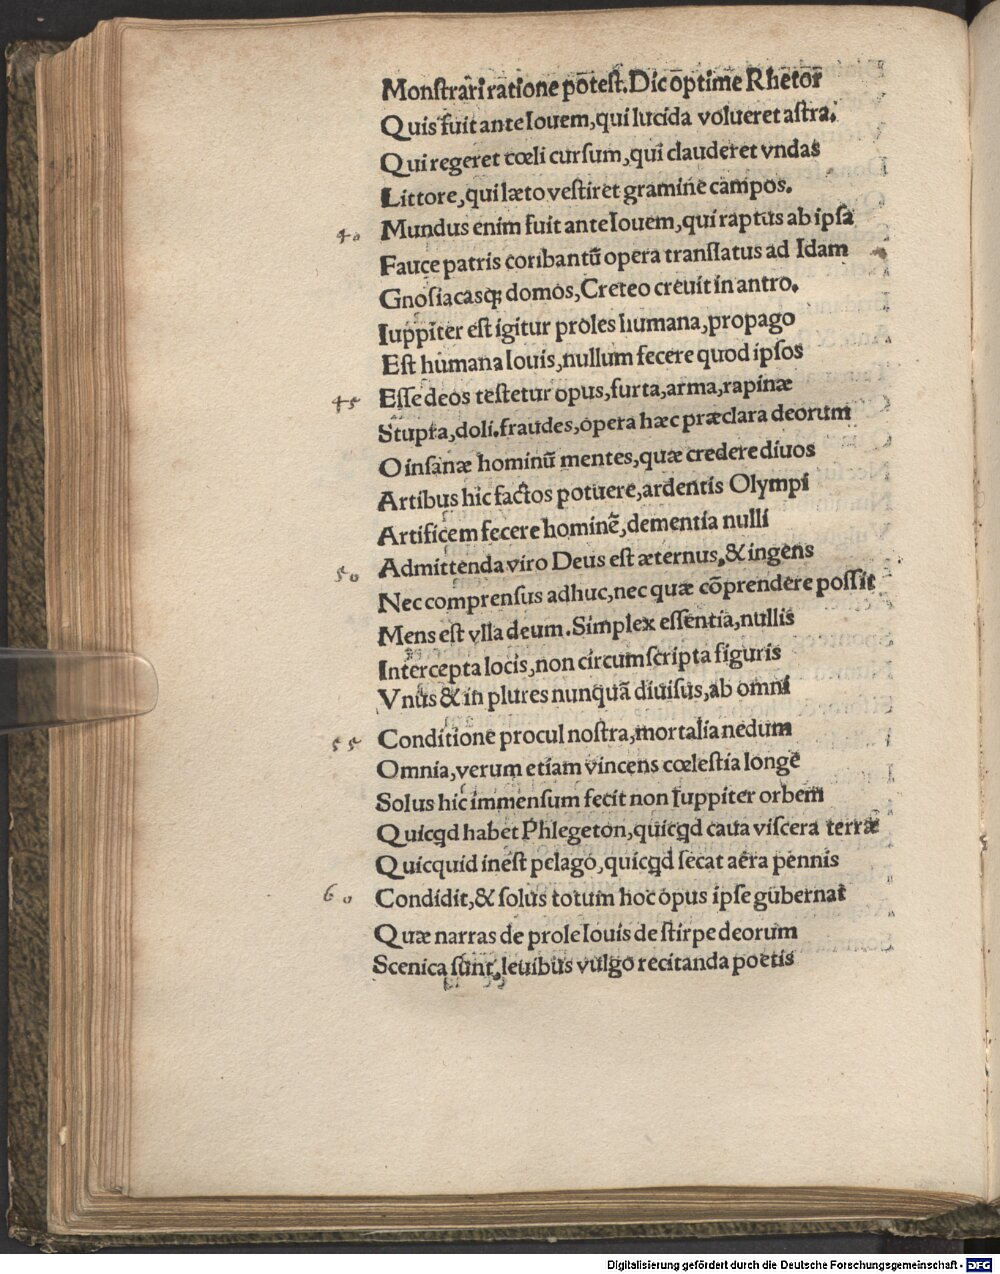 Monstrari ratione potest. Dic optime Rhetor
Quis fuit ante Iouem, qui lucida volueret astra,
Qui regeret cœli cursum, qui clauderet vndas
Littore, qui læto vestiret gramine campos.
40 Mundus enim fuit ante Iouem, qui raptus ab ipsa
Fauce patris coribantũ opera translatus ad Idam
Gnosiacasq; domos, Creteo creuit in antro.
Iuppiter est igitur proles humana, propago
Est humana Iouis, nullum fecere quod ipsos
45 Esse deos testetur opus, furta, arma, rapinæ
Stupra, doli. fraudes, opera hæc præclara deorum
O insanæ hominũ mentes, quæ credere diuos
Artibus hic factos potuere, ardentis Olympi
Artificem fecere hominẽ, dementia nulli
50 Admittenda viro Deus est æternus, & ingens
Nec comprensus adhuc, nec quæ cõprendere possit
Mens est vlla deum. Simplex essentia, nullis
Intercepta locis, non circumscripta figuris
Vnus & in plures nunquã diuisus, ab omni
55 Conditione procul nostra, mortalia nedum
Omnia, verum etiam vincens cœlestia longe
Solus hic immensum fecit non Iuppiter orbem
Quicꝗd habet Phlegeton, quicꝗd caua viscera terræ
Quicquid inest pelago, quicꝗd secat aera pennis
60 Condidit, & solus totum hoc opus ipse gubernat
Quæ narras de prole Iouis de stirpe deorum
Scenica sunt, leuibus vulgo recitanda poetis
Digitalisierung gefördert durch die Deutsche Forschungsgemeinschaft - DFG